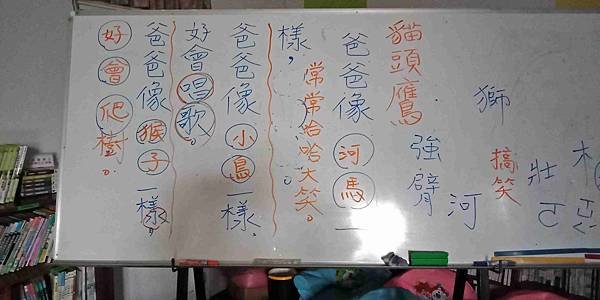 壯
獅
搞笑
河
強臂
貓頭鷹
爸爸像河馬一
樣，
常常哈哈大笑。
爸爸像小鳥一樣，
好會唱歌。
爸爸像猴子一樣，
好會爬樹。